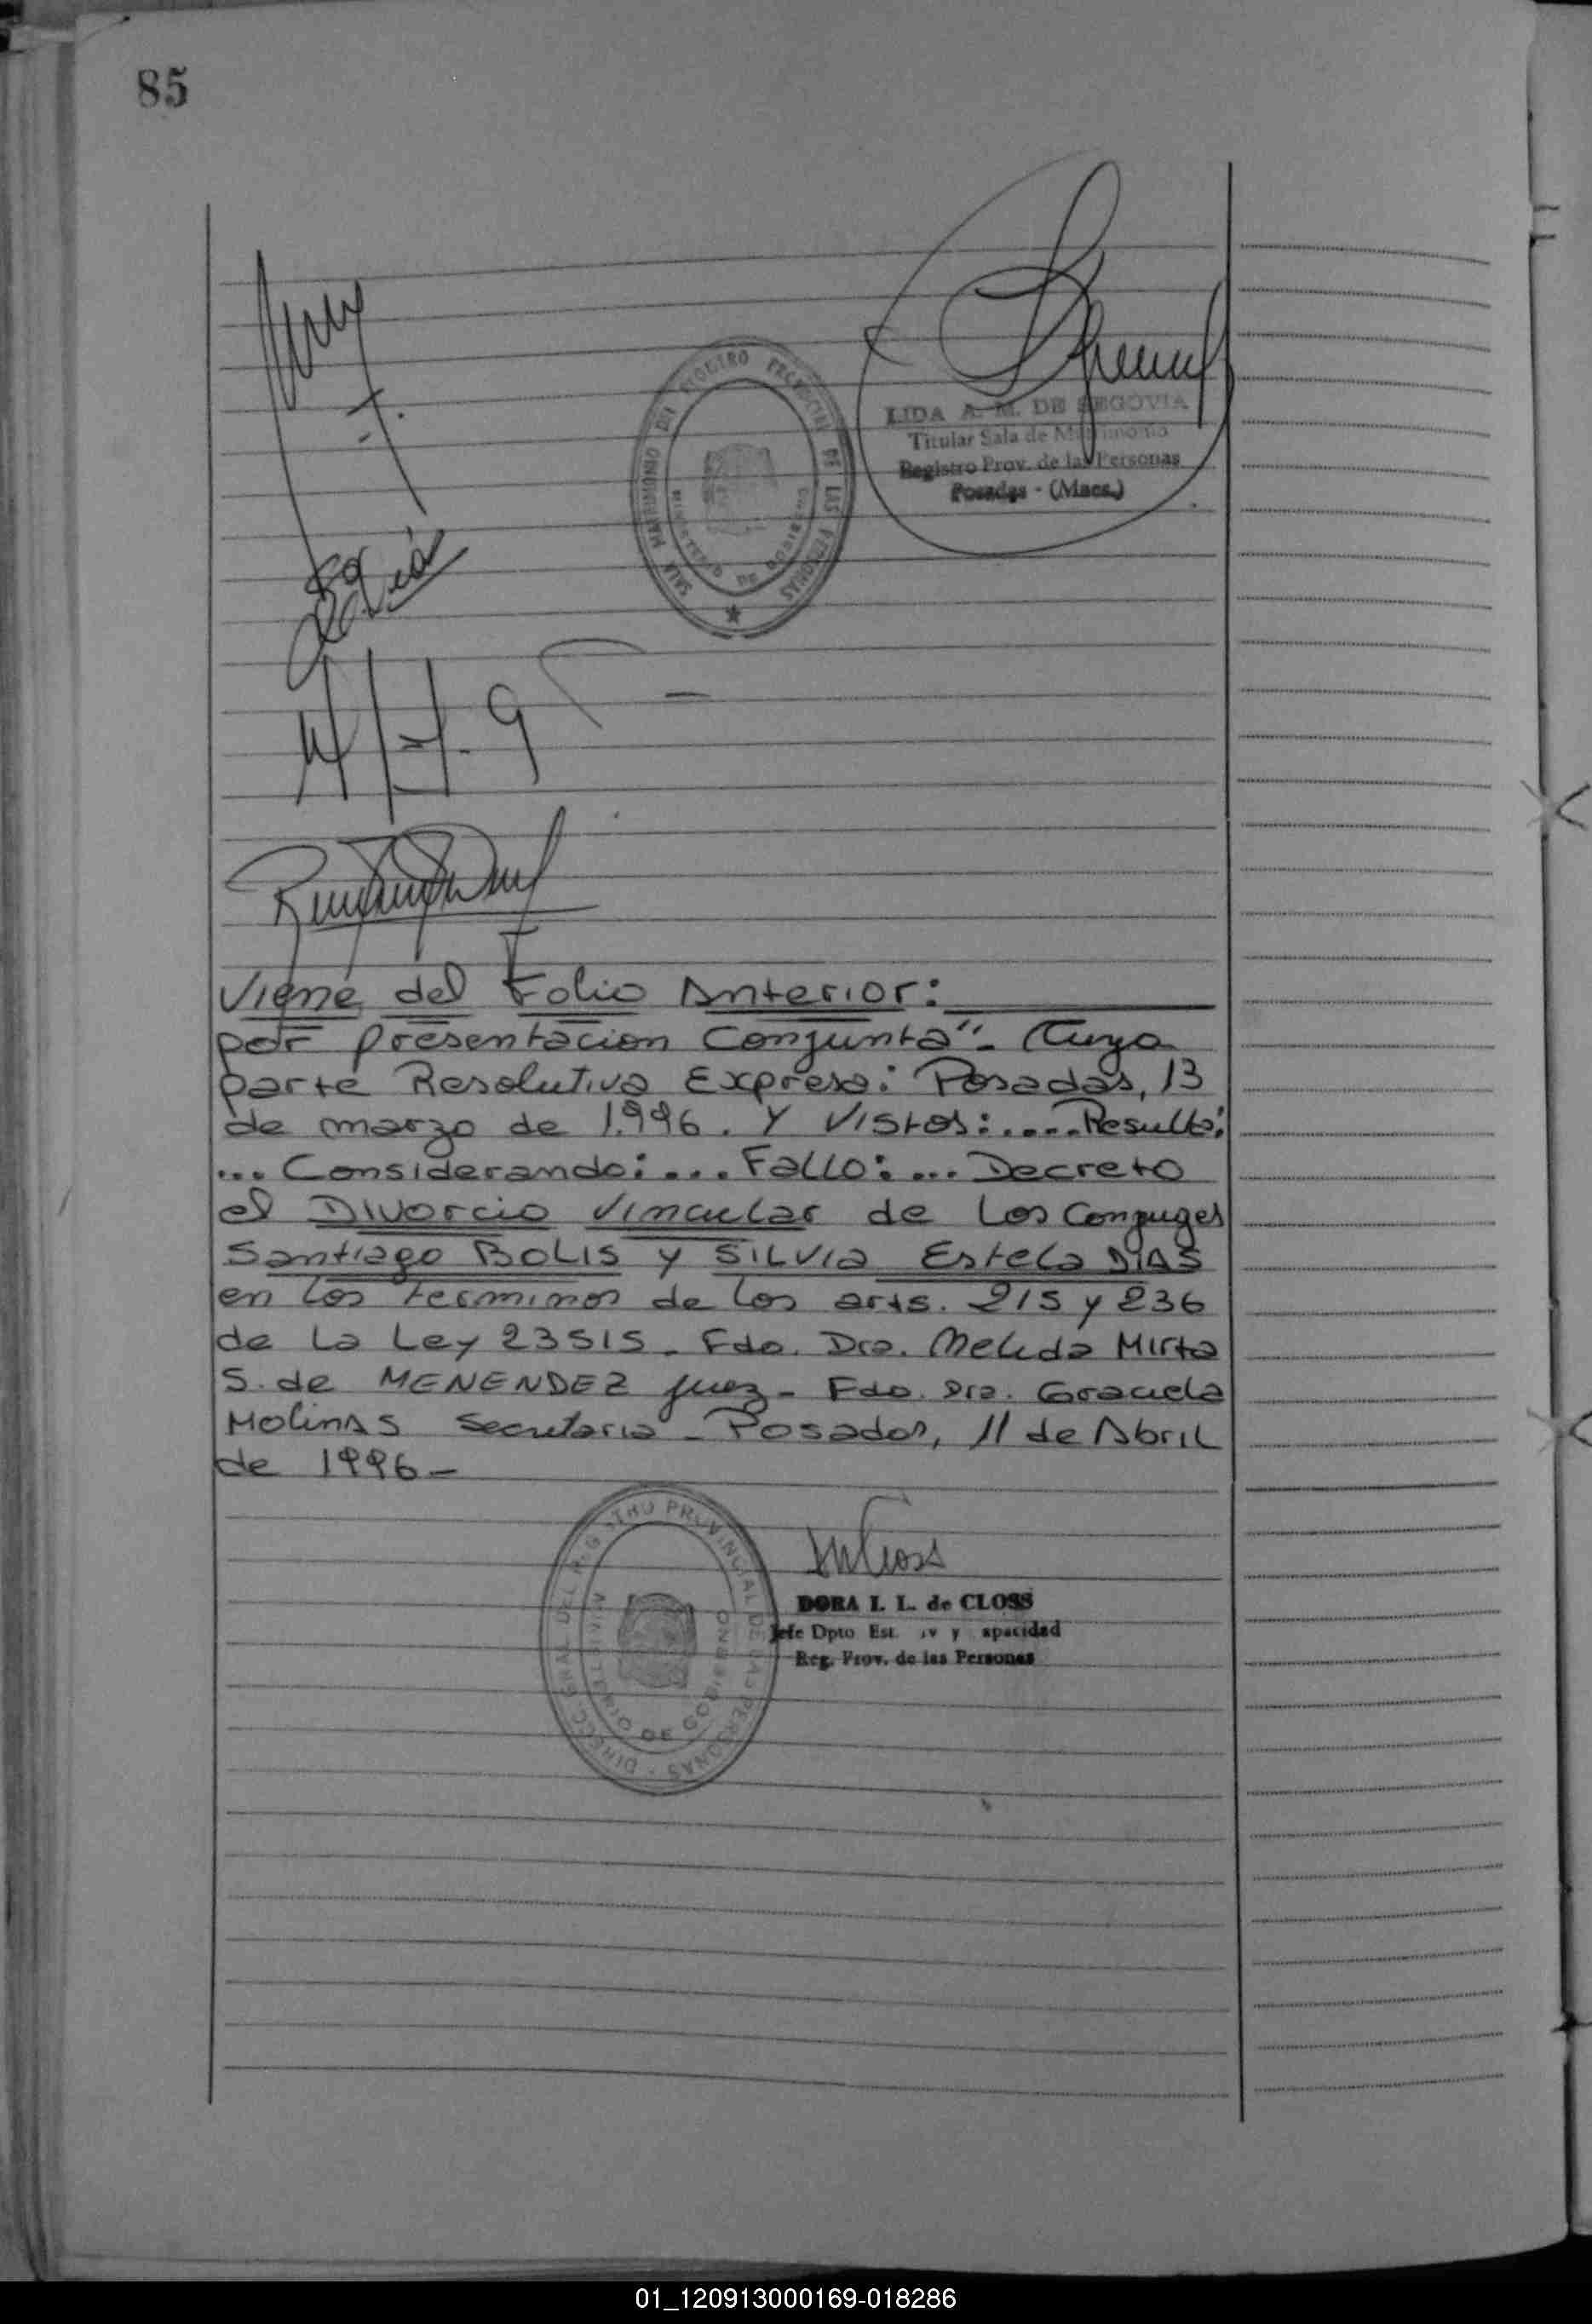 85
SALA MATRIMONIO DEL REGISTRO PROVINCIAL DE LAS PERSONAS
MINISTERIO DE GOBIERNO
LIDA A. M. DE SEGOVIA
Titular Sala de Matrimonio
Registro Prov. de las Personas
Posadas - (Mnes.)
Viene del Folio Anterior:
por presentacion Conjunta". Cuya
parte Resolutiva Expresa: Posadas, 13
de marzo de 1.996. Y Vistos:....Resulta:
... Considerando:... Fallo:... Decreto
el Divorcio Vincular de Los Conyuges
Santiago BOLIS y SILVIA Estela DIAS
en los terminos de los arts. 215 y 236
de La Ley 23515. Fdo. Dra. Melida Mirta
S. de MENENDEZ Juez - Fdo. Dra. Graciela
MolinAS Secretaria - Posadas, 11 de Abril
de 1996-
DIRECC GRAL DEL REGISTRO PROVINCIAL DE LAS PERSONAS -
MINISTERIO DE GOBIERNO
DORA I. L. de CLOSS
Jefe Dpto Est. iv y apacidad
Reg. Prov. de las Personas
01_120913000169-018286